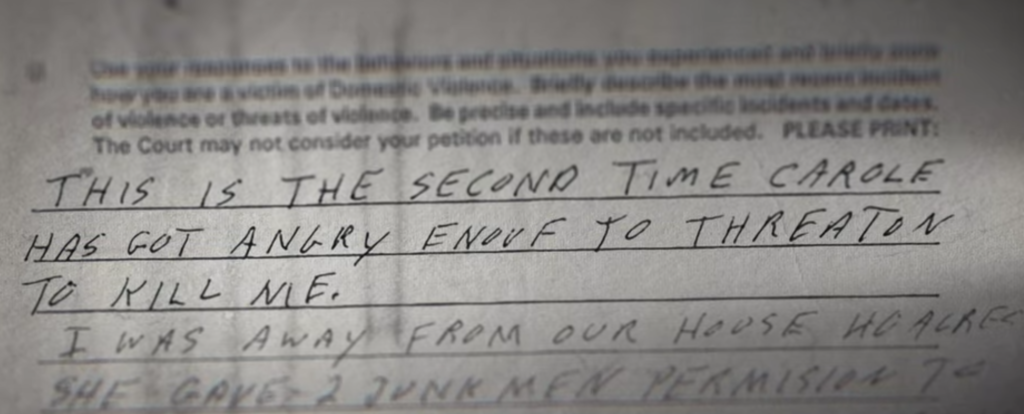 Use your responses to the behaviors and situations you experienced and briefly state
how you are a victim of Domestic Violence. Briefly describe the most recent incident
of violence or threats of violence. Be precise and include specific incidents and dates.
The Court may not consider your petition if these are not included. PLEASE PRINT:
THIS IS THE SECOND TIME CAROLE
HAS GOT ANGRY ENOUF TO THREATON
TO KILL ME.
I WAS AWAY FROM OUR HOUSE 40 ACRES
SHE GAVE 2 JUNK MEN PERMISION TO